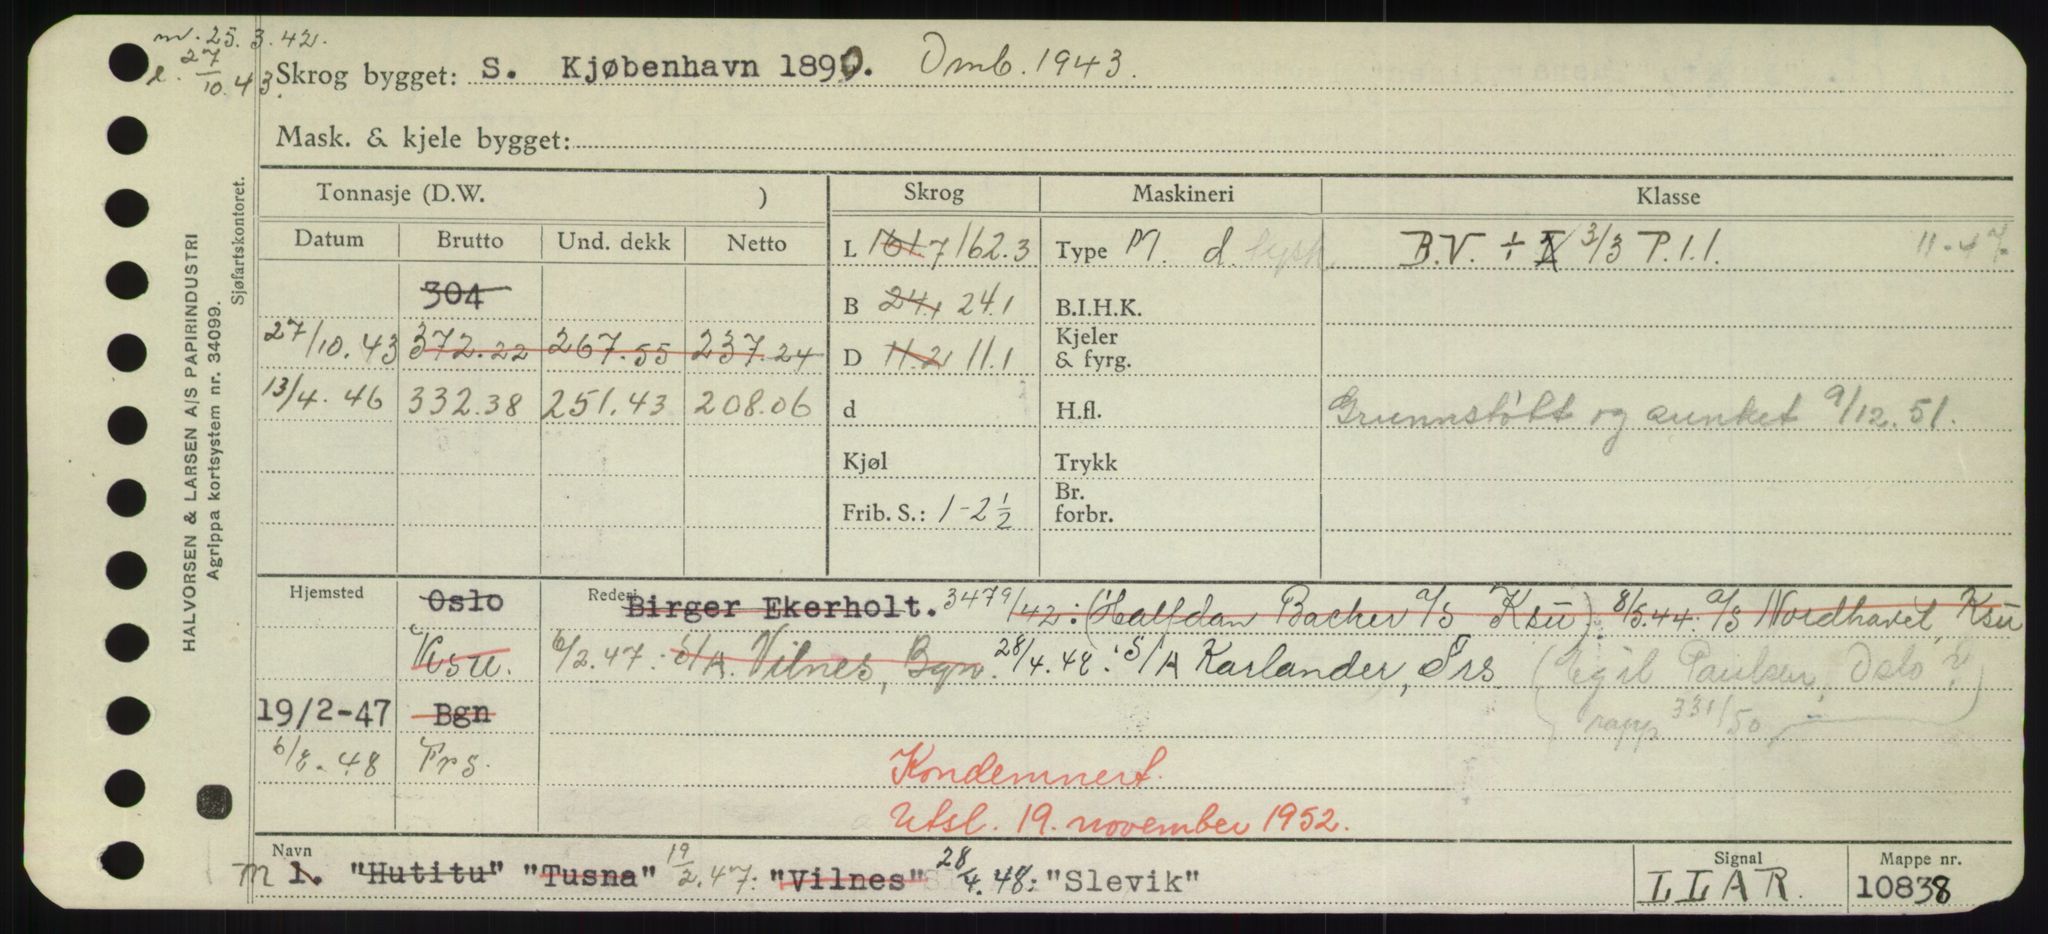 m. 25.3.42.
l. 27/10.43.
Skrog bygget: S. Kjøbenhavn 1890. Omb. 1943.
Mask. & kjele bygget:
HALVORSEN & LARSEN A/S PAPIRINDUSTRI
Agrippa kortsystem nr. 34099.
Sjøfartskontoret.
Tonnasje (D.W. ) Skrog Maskineri Klasse
Datum Brutto Und. dekk Netto L 161.7 162.3 Type M. d B.V. ÷ I 3/3 P.1.1. 11-47
304 B 24.1 24.1 B.I.H.K.
27/10.43 372.22 267.55 237.24 D 11.2 11.1 Kjeler & fyrg.
13/4.46 332.38 251.43 208.06 d H.fl. Grunnstøtt og sunket 9/12.51.
Kjøl Trykk
Frib. S.: 1-2 1/2 Br. forbr.
Hjemsted Oslo Rederi Birger Ekerholt. 3479/42: (Halfdan Backer A/S Ksu). 8/5.44: A/S Nordhavet, Ksu
Ksu. 6/2.47: S/A. Vilnes, Bgn. 28/4.48: S/A Karlander, Frs (Egil Paulsen, Oslo?
19/2-47 Bgn rapp 331/50)
6/8.48 Frs.
Kondemnert.
Utsl. 19. november 1952.
Navn Signal Mappe nr.
M 1. "Hutitu" "Tusna" 19/2.47: "Vilnes" 28/4.48: "Slevik" LLAR. 10838